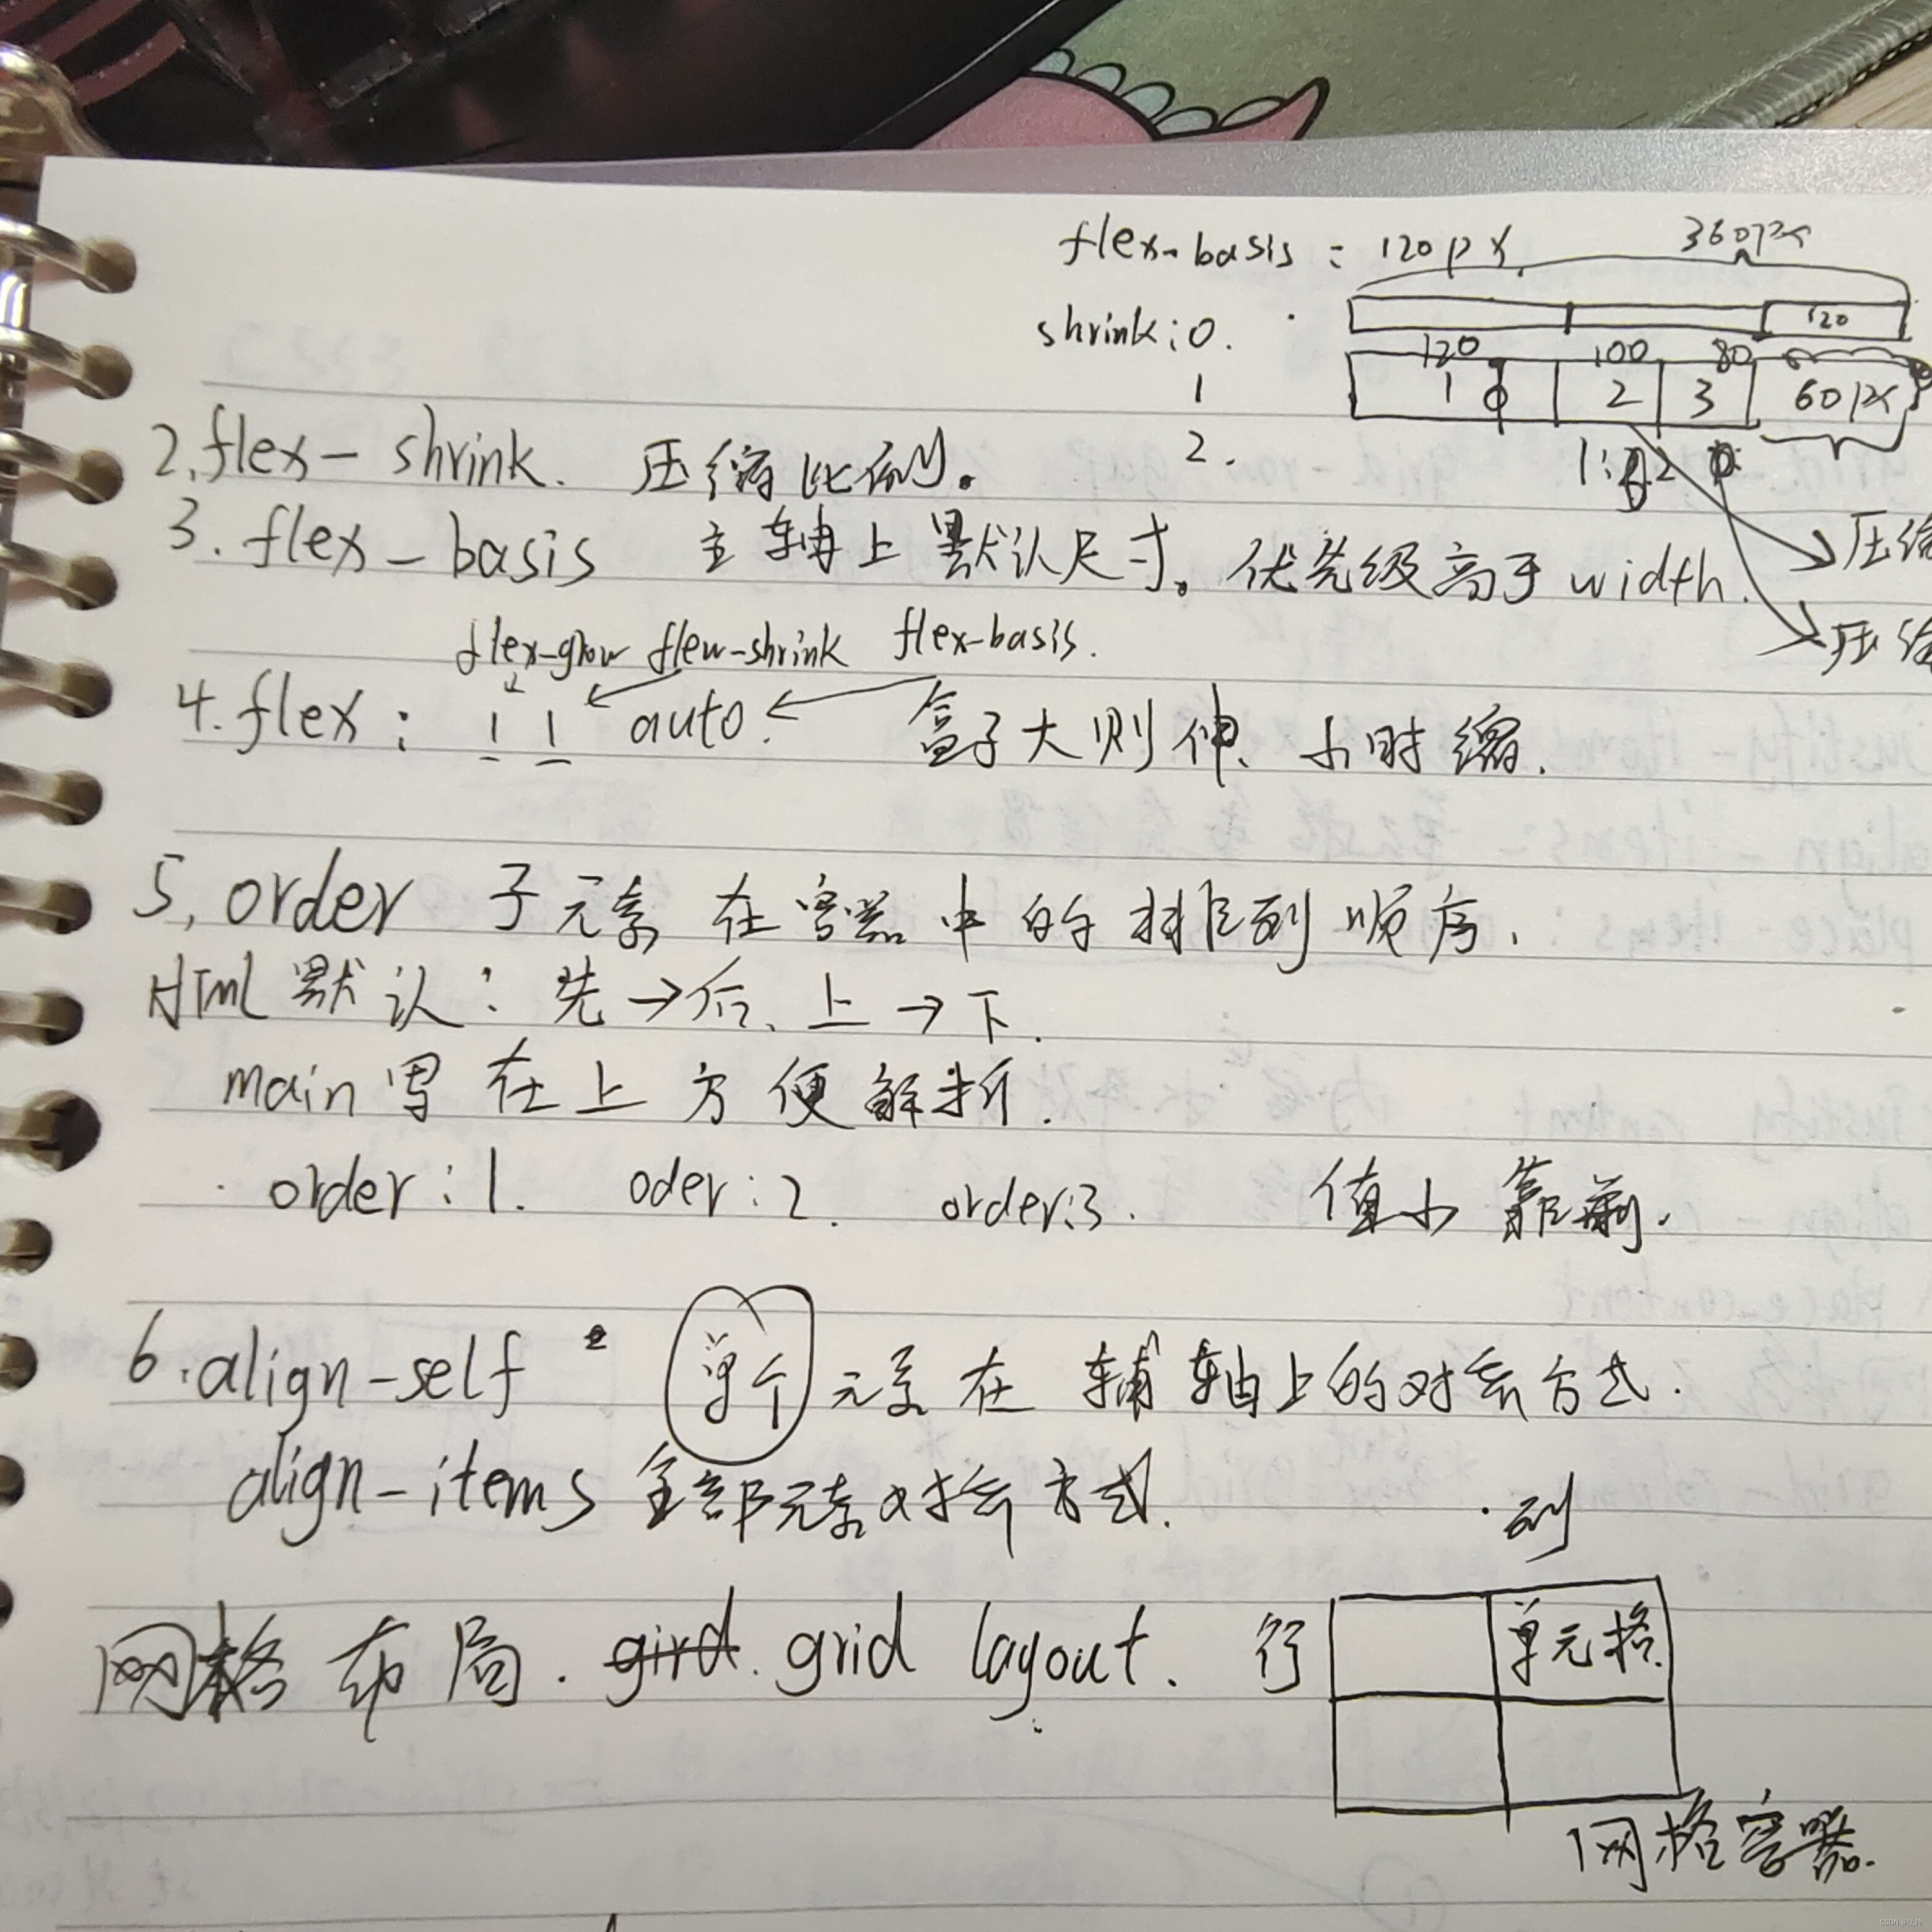 flex-basis : 120px. 360px
shrink : 0. 120
120 100 80
1 1 2 3 60px
2.flex- shrink. 压缩比例。 2. 1:2
3. flex-basis 主轴上默认尺寸。优先级高于width. 压缩
flex-grow flew-shrink flex-basis. 压缩
4.flex: 1 1 auto. 盒子大则伸、小时缩.
5. order 子元素在容器中的排列顺序.
HTml默认: 先→后、上→下.
main写在上方便解析.
order:1. oder:2. order:3. 值小靠前.
6.align-self 单个元素在辅轴上的对齐方式.
align-items 全部元素对齐方式.
列
网格布局. gird. grid layout. 行 单元格.
网格容器.
CSDN